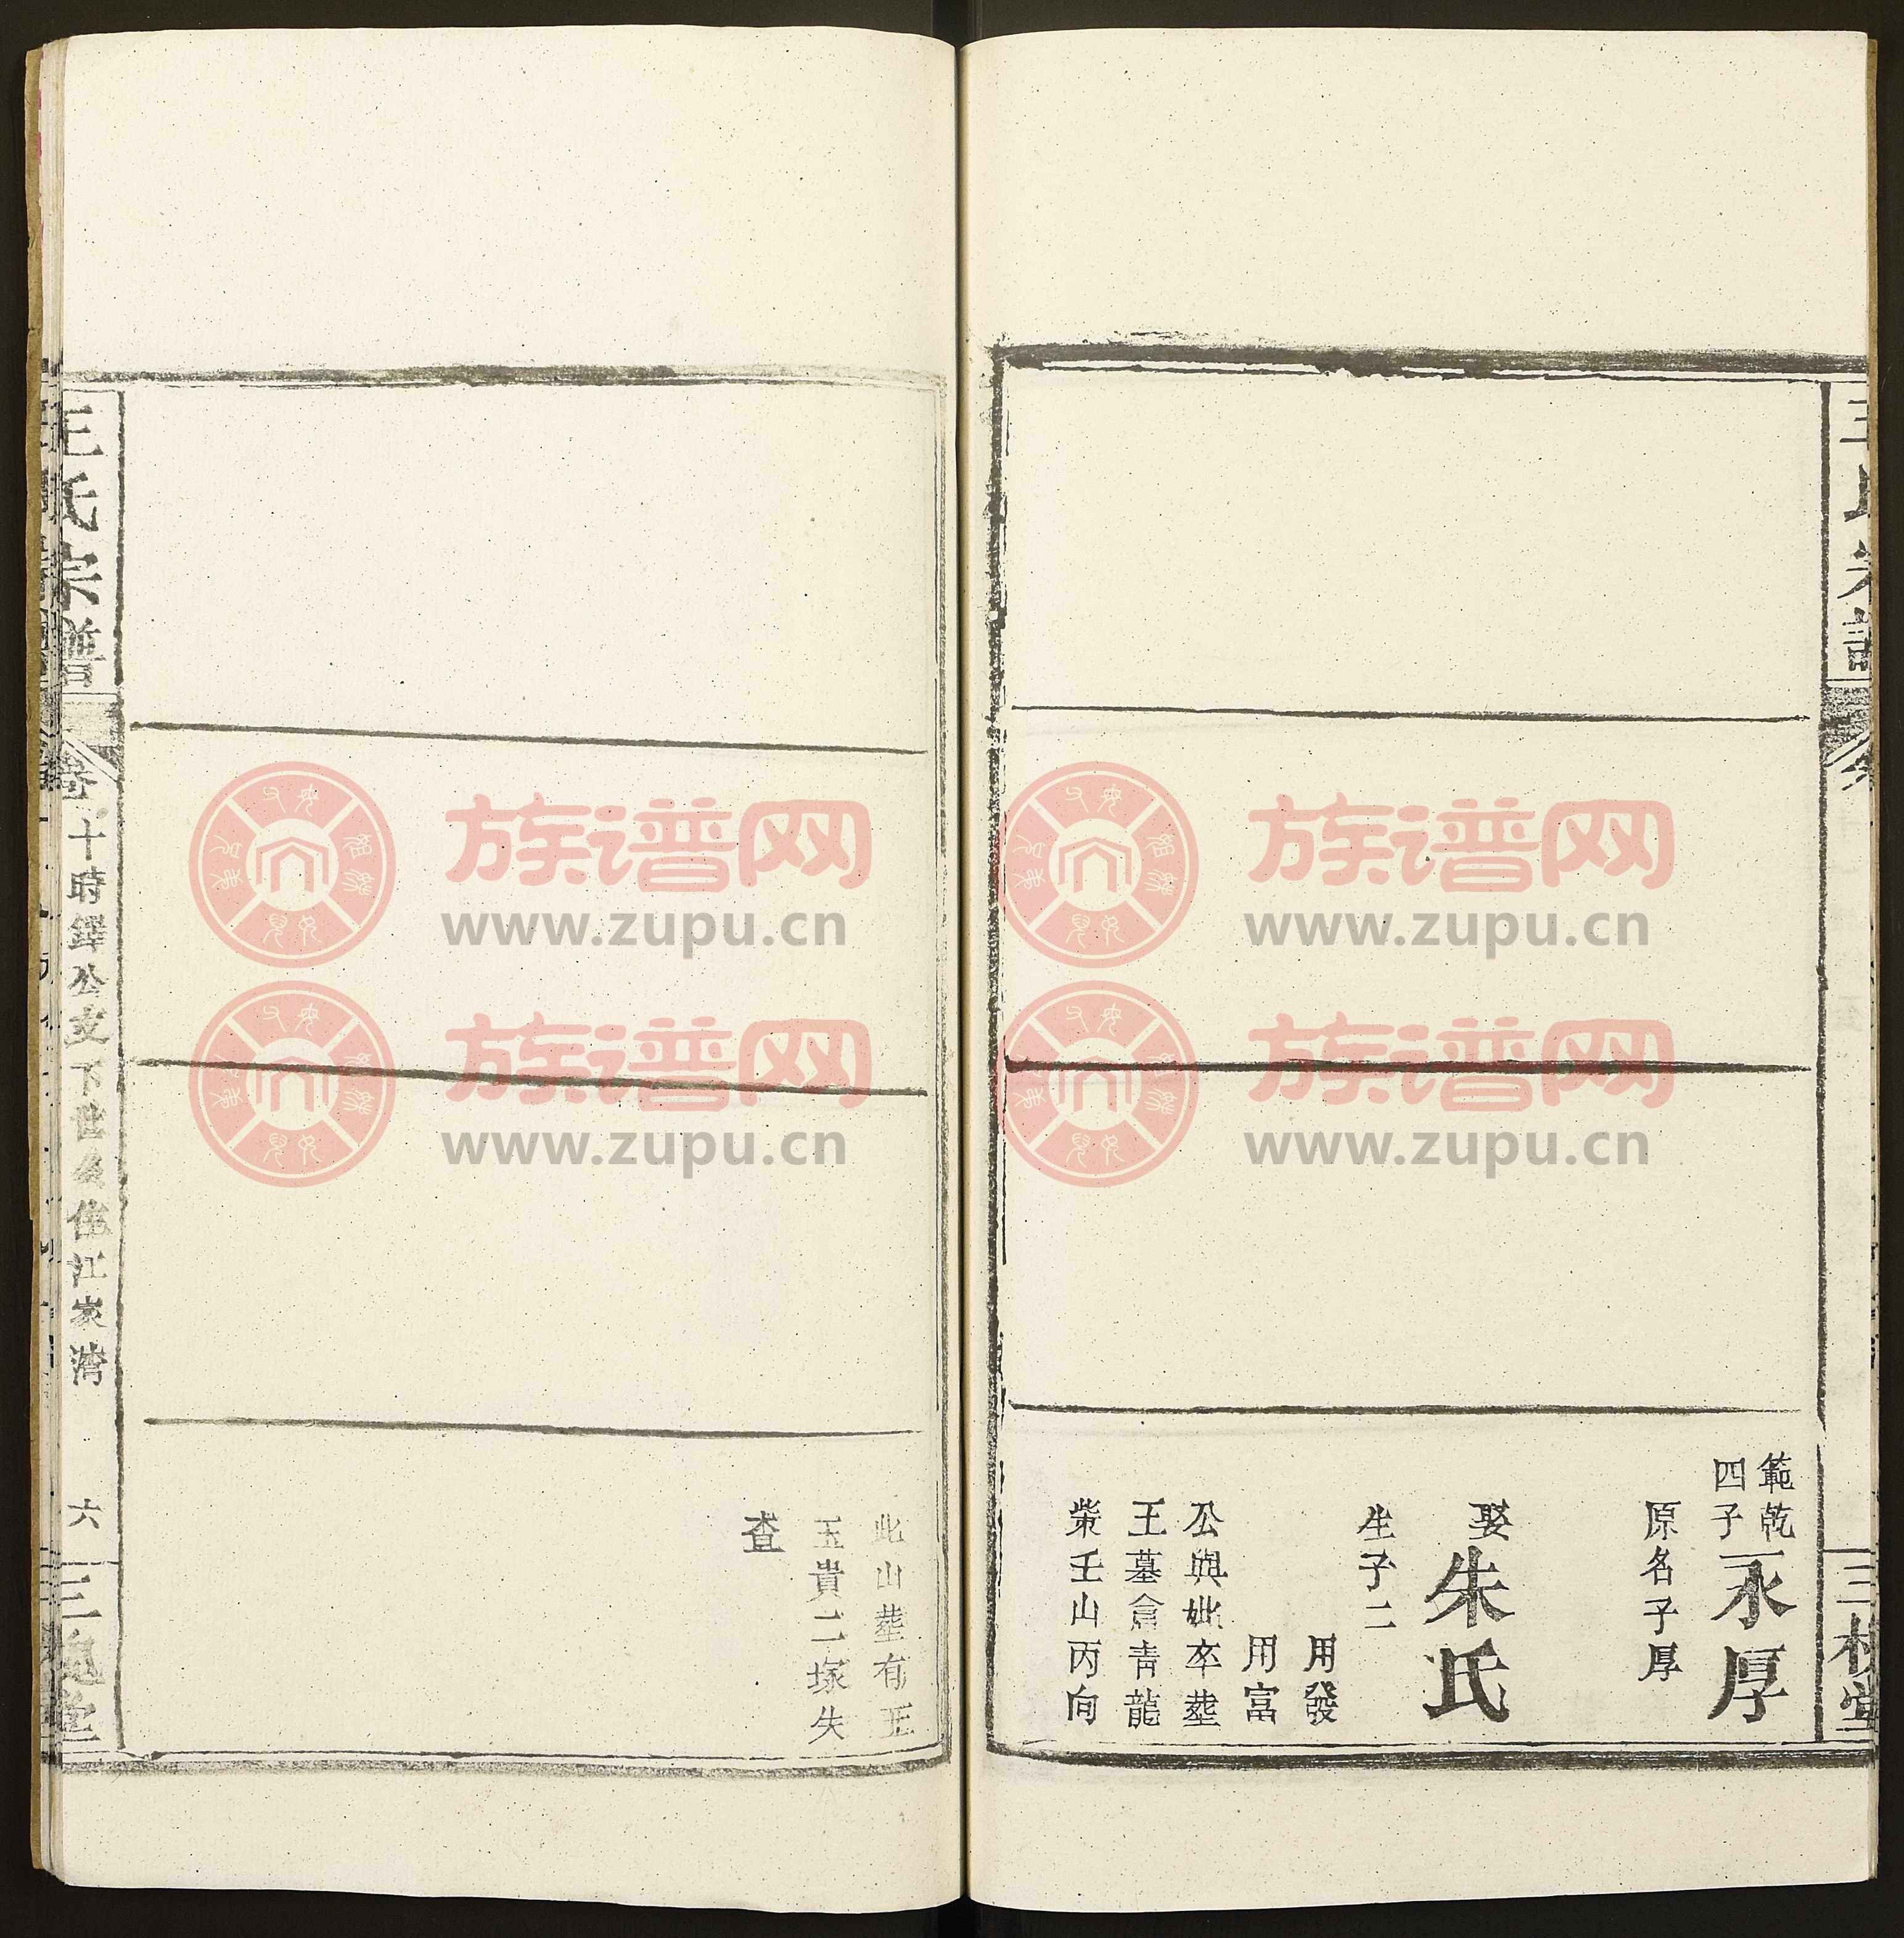 王氏宗譜
三槐堂
範乾
四子
永厚
原名子厚
娶
朱氏
生子二
用發
用富
公與妣卒塟
王墓侖青龍
柴壬山丙向
此山塟有王
玉貴二塚失
查
王氏宗譜
卷十時鐸公支下世系住江家湾
六
三槐堂
族谱网
www.zupu.cn
族谱网
www.zupu.cn
族谱网
www.zupu.cn
族谱网
www.zupu.cn